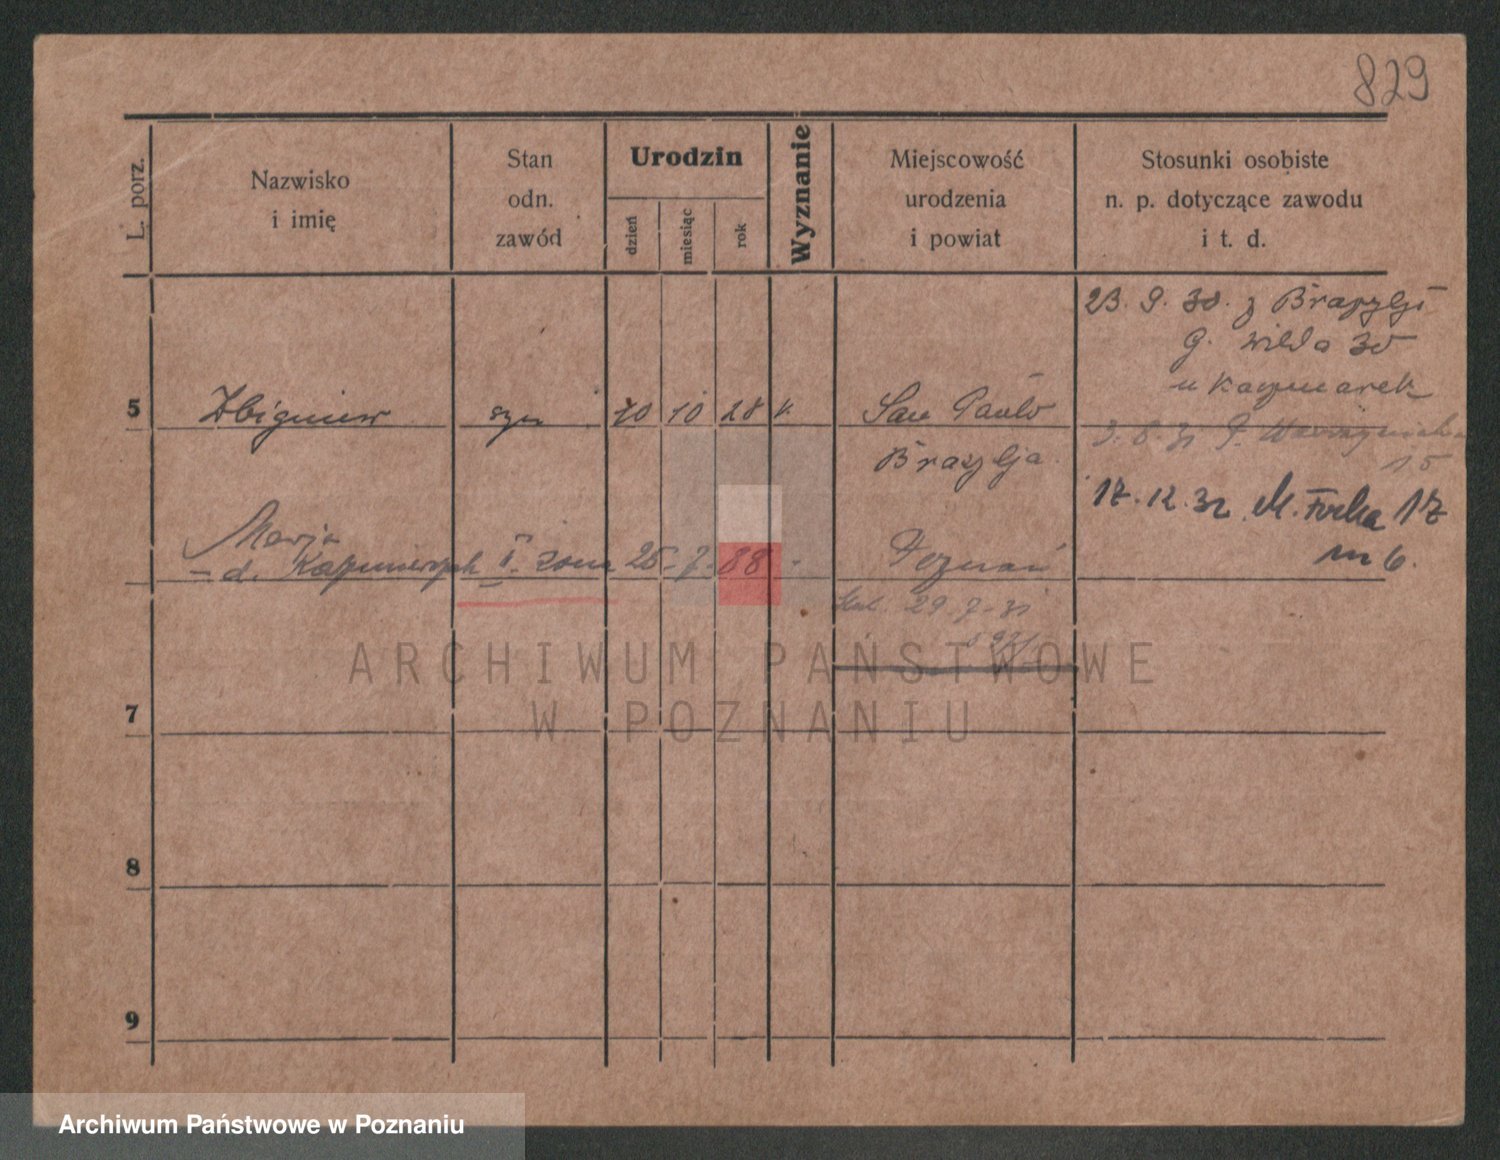 829
L. porz.
Nazwisko
i imię
Stan
odn.
zawód
Urodzin
dzień
miesiąc
rok
Wyznanie
Miejscowość
urodzenia
i powiat
Stosunki osobiste
n. p. dotyczące zawodu
i t. d.
23. 9. 30. z Brazylji
G. Wilda 30
u Kaczmarek
5 Zbigniew syn 10 10 28 k. San Paulo
Brazylja
15
17. 12. 32 M. Focha 17
m 6.
Marja
II. żona 25 - 7 - 88 - Poznań
29.7.31
7
8
9
ARCHIWUM PAŃSTWOWE
W POZNANIU
Archiwum Państwowe w Poznaniu